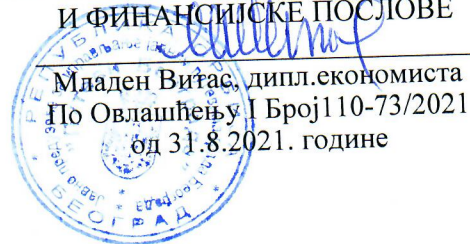 И ФИНАНСИЈСКЕ ПОСЛОВЕ
Младен Витас, дипл.економиста
По Овлашћењу I Број110-73/2021
од 31.8.2021. године
РЕПУБЛИКА
БЕОГРАД